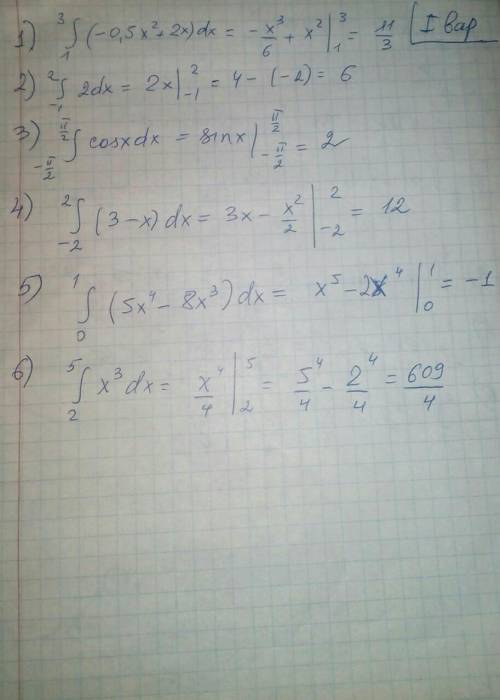 1) ∫₁³ (-0,5x²+2x)dx = -x³/6 + x² |₁³ = 11/3 I вар
2) ∫₋₁² 2dx = 2x|₋₁² = 4-(-2) = 6
3) ∫_{-π/2}^{π/2} cosxdx = sinx|_{-π/2}^{π/2} = 2
4) ∫₋₂² (3-x)dx = 3x - x²/2 |₋₂² = 12
5) ∫₀¹ (5x⁴-8x³)dx = x⁵-2x⁴ |₀¹ = -1
6) ∫₂⁵ x³dx = x⁴/4 |₂⁵ = 5⁴/4 - 2⁴/4 = 609/4